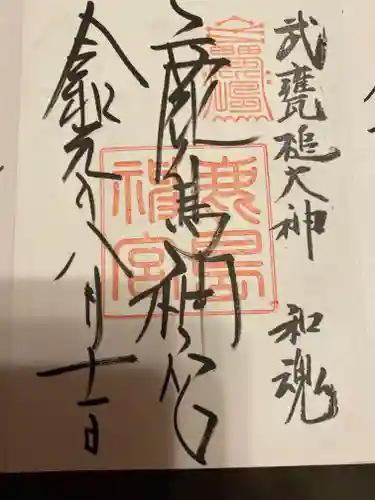 武甕槌大神 和魂
鹿島神宮
鹿島
神宮
令和元年八月十一日